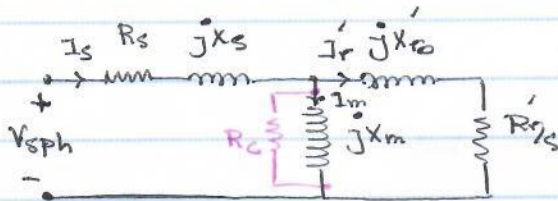 Is Rs jXs I'r jX'ro
+ Im
Vsph Rc jXm R'r/s
-